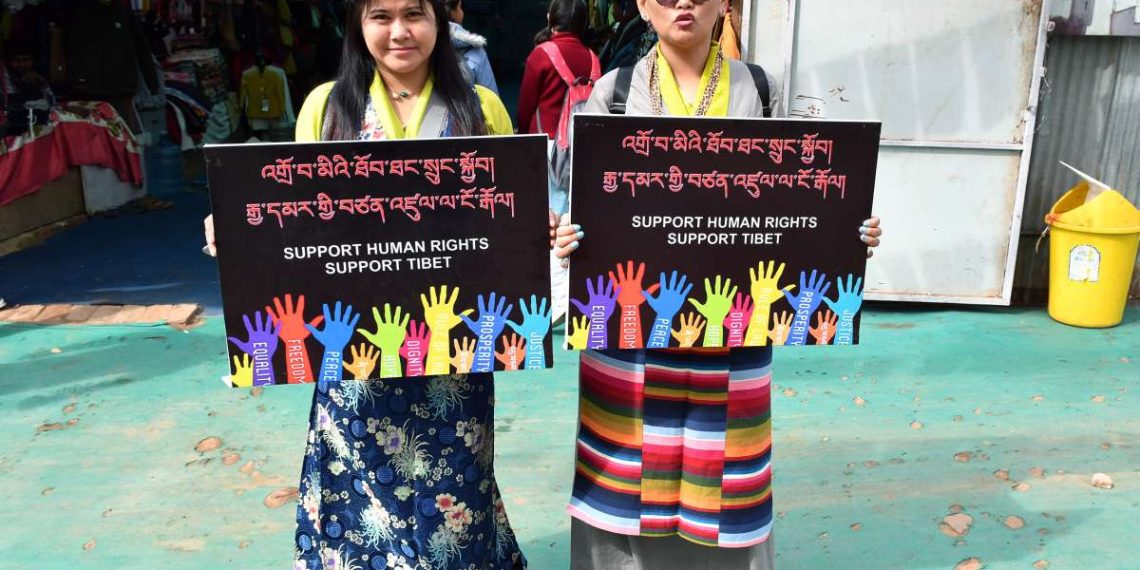 འགྲོ་བ་མིའི་ཐོབ་ཐང་སྲུང་སྐྱོབ།
རྒྱ་དམར་གྱི་བཙན་འཛུལ་ལ་ངོ་རྒོལ།
SUPPORT HUMAN RIGHTS
SUPPORT TIBET
EQUALITY
FREEDOM
PEACE
HOPE
DIGNITY
RULE OF LAW
PROSPERITY
JUSTICE
འགྲོ་བ་མིའི་ཐོབ་ཐང་སྲུང་སྐྱོབ།
རྒྱ་དམར་གྱི་བཙན་འཛུལ་ལ་ངོ་རྒོལ།
SUPPORT HUMAN RIGHTS
SUPPORT TIBET
EQUALITY
FREEDOM
PEACE
HOPE
DIGNITY
RULE OF LAW
PROSPERITY
JUSTICE